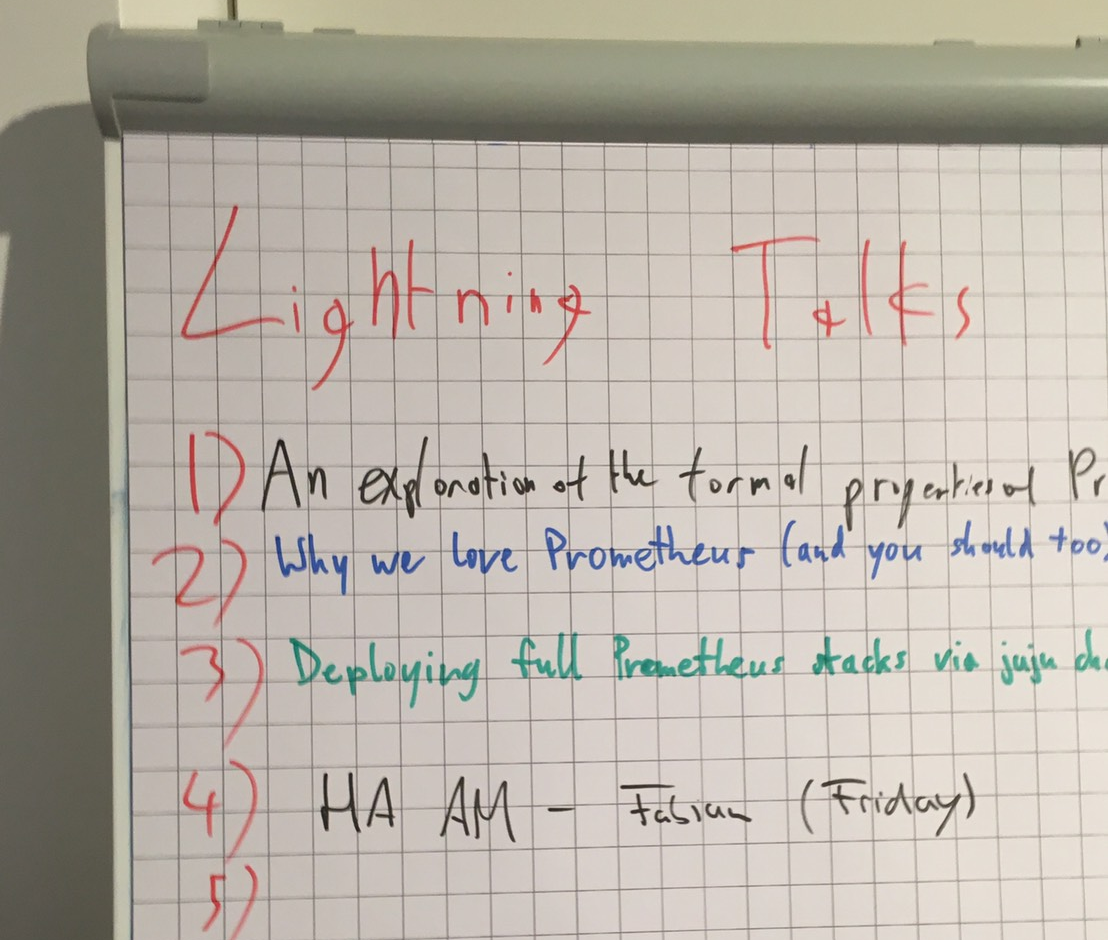 Lightning Talks
1) An exploration of the formal properties of Pr
2) Why we love Prometheus (and you should too)
3) Deploying full Prometheus stacks via juju cha
4) HA AM - Fabian (Friday)
5)